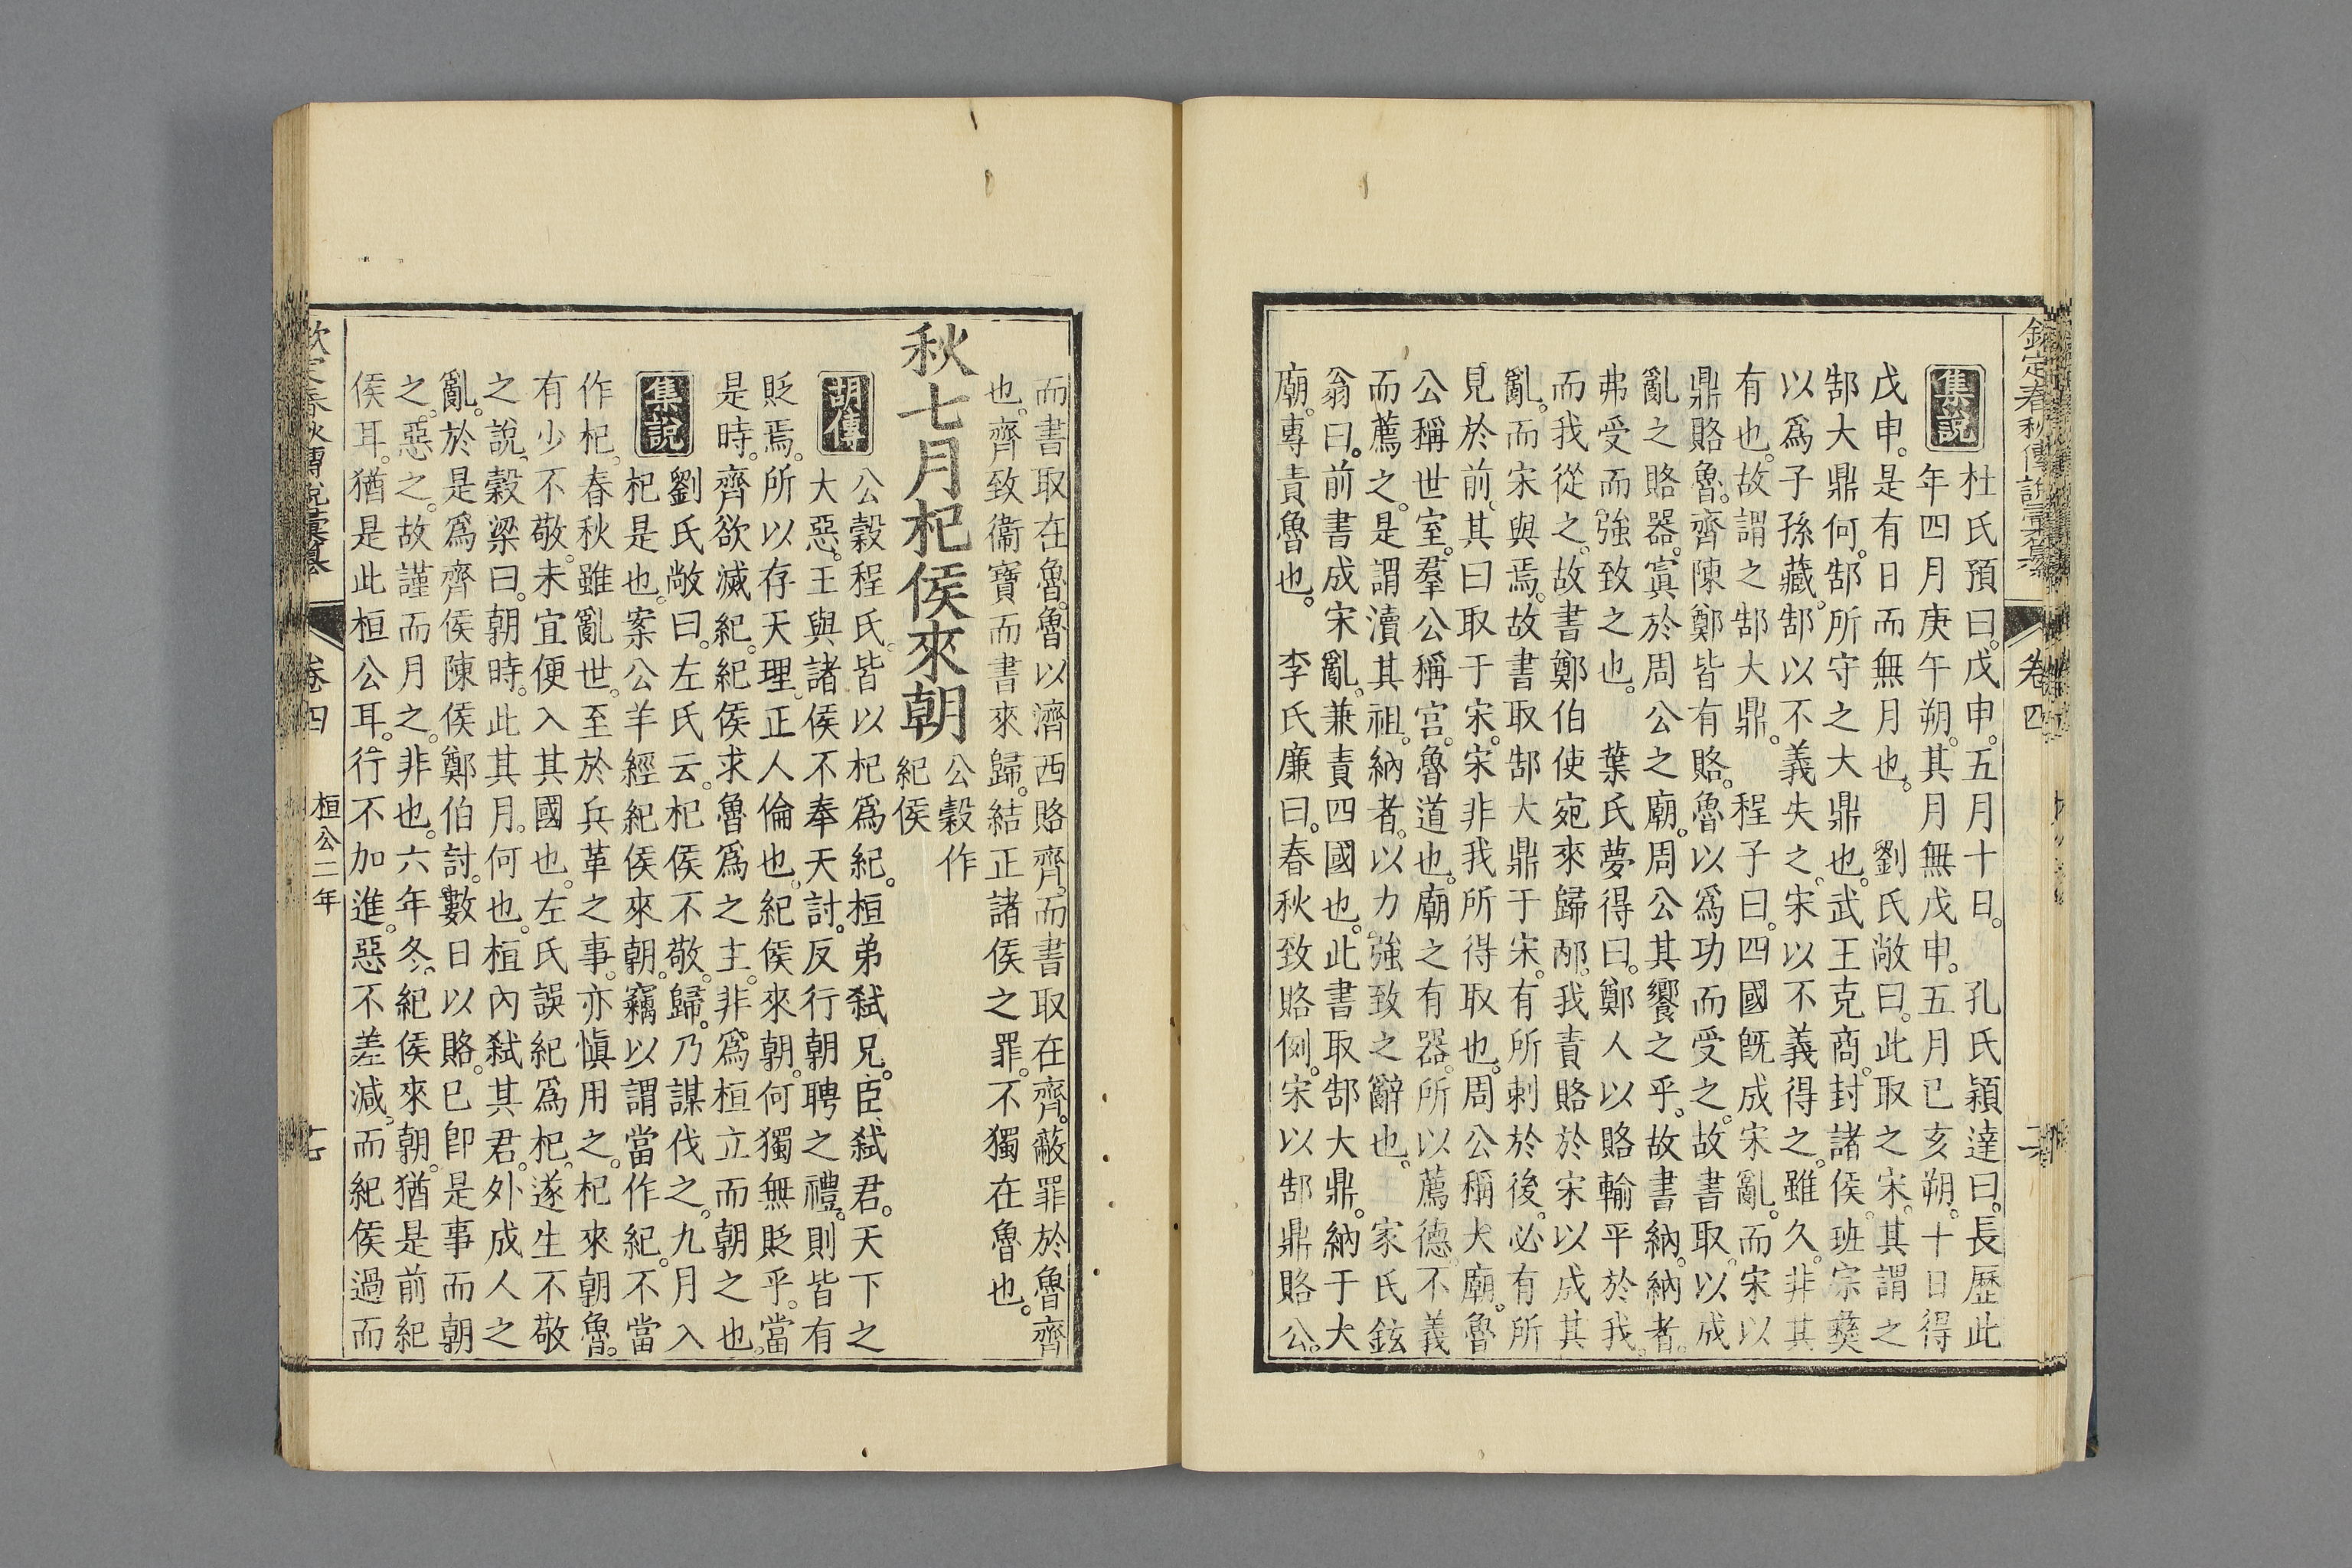 欽定春秋傳說彙纂 卷四
集說 杜氏預曰。戊申。五月十日。 孔氏穎達曰。長歷此
年四月庚午朔。其月無戊申。五月己亥朔。十日得
戊申。是有日而無月也。 劉氏敞曰。此取之宋。其謂之
郜大鼎何。郜所守之大鼎也。武王克商。封諸侯。班宗彝
以爲子孫藏。郜以不義失之。宋以不義得之。雖久。非其
有也。故謂之郜大鼎。 程子曰。四國既成宋亂。而宋以
鼎賂魯。齊陳鄭皆有賂。魯以爲功而受之。故書取。以成
亂之賂器。寘於周公之廟。周公其饗之乎。故書納。納者。
弗受而強致之也。 葉氏夢得曰。鄭人以賂輸平於我。
而我從之。故書鄭伯使宛來歸祊。我責賂於宋以成其
亂。而宋與焉。故書取郜大鼎于宋。有所刺於後。必有所
見於前、其曰取于宋。宋非我所得取也。周公稱大廟。魯
公稱世室。羣公稱宮。魯道也。廟之有器。所以薦德。不義
而薦之。是謂瀆其祖。納者。以力強致之辭也。 家氏鉉
翁曰。前書成宋亂。兼責四國也。此書取郜大鼎。納于大
廟。專責魯也。 李氏廉曰。春秋致賂例。宋以郜鼎賂公。
而書取在魯。魯以濟西賂齊。而書取在齊。蔽罪於魯齊
也。齊致衞寶而書來歸。結正諸侯之罪。不獨在魯也。
秋七月杞侯來朝 公穀作
紀侯
公穀程氏。皆以杞爲紀。桓弟弒兄。臣弒君。天下之
胡傳 大惡。王與諸侯不奉天討。反行朝聘之禮。則皆有
貶焉。所以存天理、正人倫也。紀侯來朝。何獨無貶乎。當
是時。齊欲滅紀。紀侯求魯爲之主。非爲桓立而朝之也。
集說 劉氏敞曰。左氏云。杞侯不敬。歸。乃謀伐之。九月入
杞是也。案公羊經紀侯來朝。竊以謂當作紀。不當
作杞。春秋雖亂世。至於兵革之事。亦愼用之。杞來朝魯。
有少不敬。未宜便入其國也。左氏誤紀爲杞。遂生不敬
之說、穀梁曰。朝時。此其月。何也。桓內弒其君。外成人之
亂。於是爲齊侯陳侯鄭伯討。數日以賂。已卽是事而朝
之。惡之。故謹而月之。非也。六年冬。紀侯來朝。猶是前紀
侯耳。猶是此桓公耳。行不加進。惡不差減。而紀侯過而
欽定春秋傳說彙纂 卷四 桓公二年